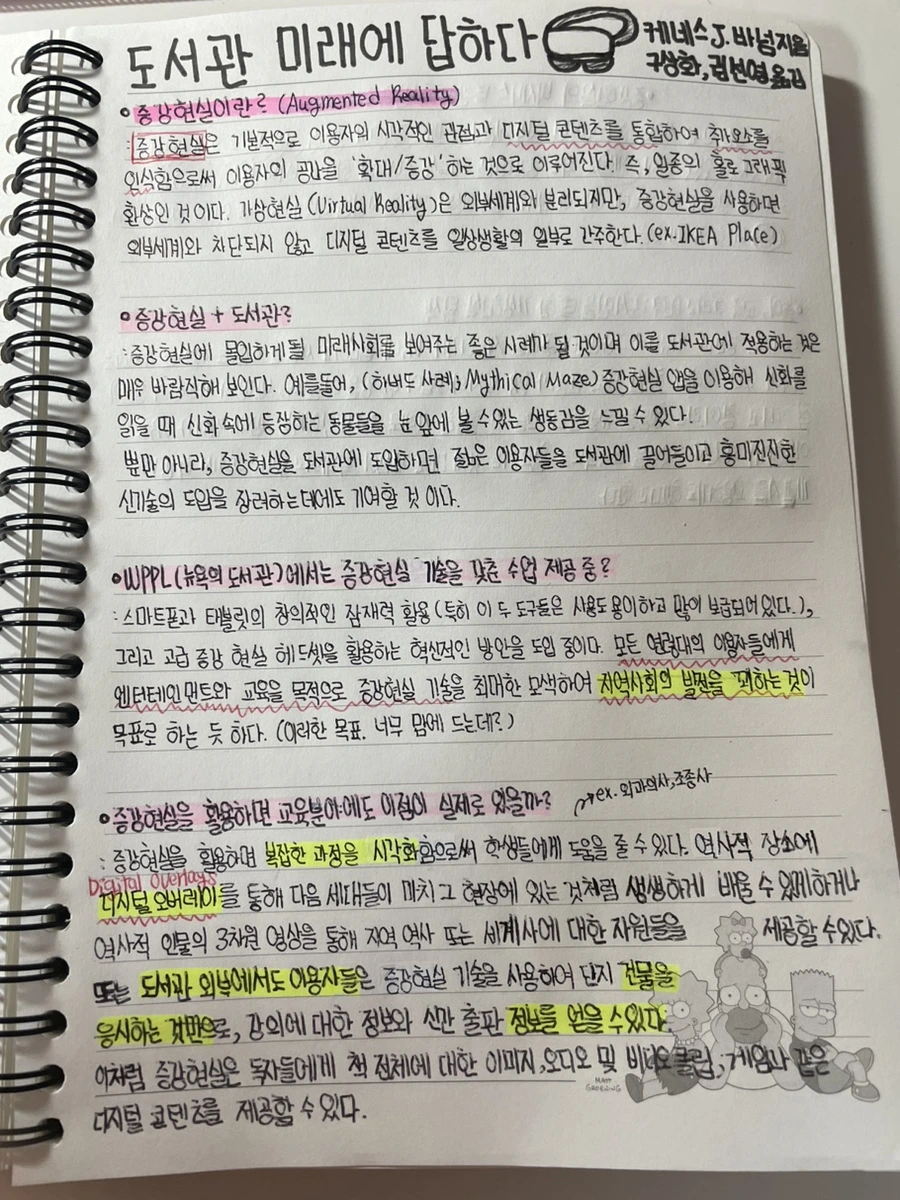 도서관 미래에 답하다
케네스 J. 바넘 지음
구상화, 김선영 옮김
• 증강현실이란? (Augmented Reality)
: 증강현실은 기본적으로 이용자의 시각적인 관점과 디지털 콘텐츠를 통합하여 취약요소를
인식함으로써 이용자의 공간을 '확대/증강'하는 것으로 이루어진다. 즉, 일종의 홀로그래픽
환상인 것이다. 가상현실 (Virtual Reality)은 외부세계와 분리되지만, 증강현실을 사용하면
외부세계와 차단되지 않고 디지털 콘텐츠를 일상생활의 일부로 간주한다. (ex. IKEA Place)
• 증강현실 + 도서관?
: 증강현실에 몰입하게 될 미래사회를 보여주는 좋은 사례가 될 것이며 이를 도서관에 적용하는 것은
매우 바람직해 보인다. 예를들어, (하버드 사례; Mythical Maze) 증강현실 앱을 이용해 신화를
읽을 때 신화 속에 등장하는 동물들을 눈 앞에 볼 수 있는 생동감을 느낄 수 있다.
뿐만 아니라, 증강현실을 도서관에 도입하면 젊은 이용자들을 도서관에 끌어들이고 흥미진진한
신기술의 도입을 장려하는데에도 기여할 것 이다.
• WPPL (뉴욕의 도서관)에서는 증강현실 기술을 갖춘 수업 제공 중?
: 스마트폰과 태블릿의 창의적인 잠재력 활용 (특히 이 두 도구들은 사용도 용이하고 많이 보급되어 있다.),
그리고 고급 증강 현실 헤드셋을 활용하는 혁신적인 방안을 도입 중이다. 모든 연령대의 이용자들에게
엔터테인먼트와 교육을 목적으로 증강현실 기술을 최대한 모색하여 지역사회의 발전을 꾀하는 것이
목표로 하는 듯 하다. (이러한 목표. 너무 맘에 드는데?)
• 증강현실을 활용하면 교육분야에도 이점이 실제로 있을까?
→ ex. 외과의사, 조종사
: 증강현실을 활용하면 복잡한 과정을 시각화함으로써 학생들에게 도움을 줄 수 있다. 역사적 장소에
Digital Overlays
디지털 오버레이를 통해 다음 세대들이 마치 그 현장에 있는 것처럼 생생하게 배울 수 있게 하거나
역사적 인물의 3차원 영상을 통해 지역 역사 또는 세계사에 대한 자원들을 제공할 수 있다.
또는 도서관 외부에서도 이용자들은 증강현실 기술을 사용하여 단지 건물을
응시하는 것만으로, 강의에 대한 정보와 신간 출판 정보를 얻을 수 있다.
이처럼 증강현실은 독자들에게 책 전체에 대한 이미지, 오디오 및 비디오 클립, 게임과 같은
디지털 콘텐츠를 제공할 수 있다.
MATT GROENING